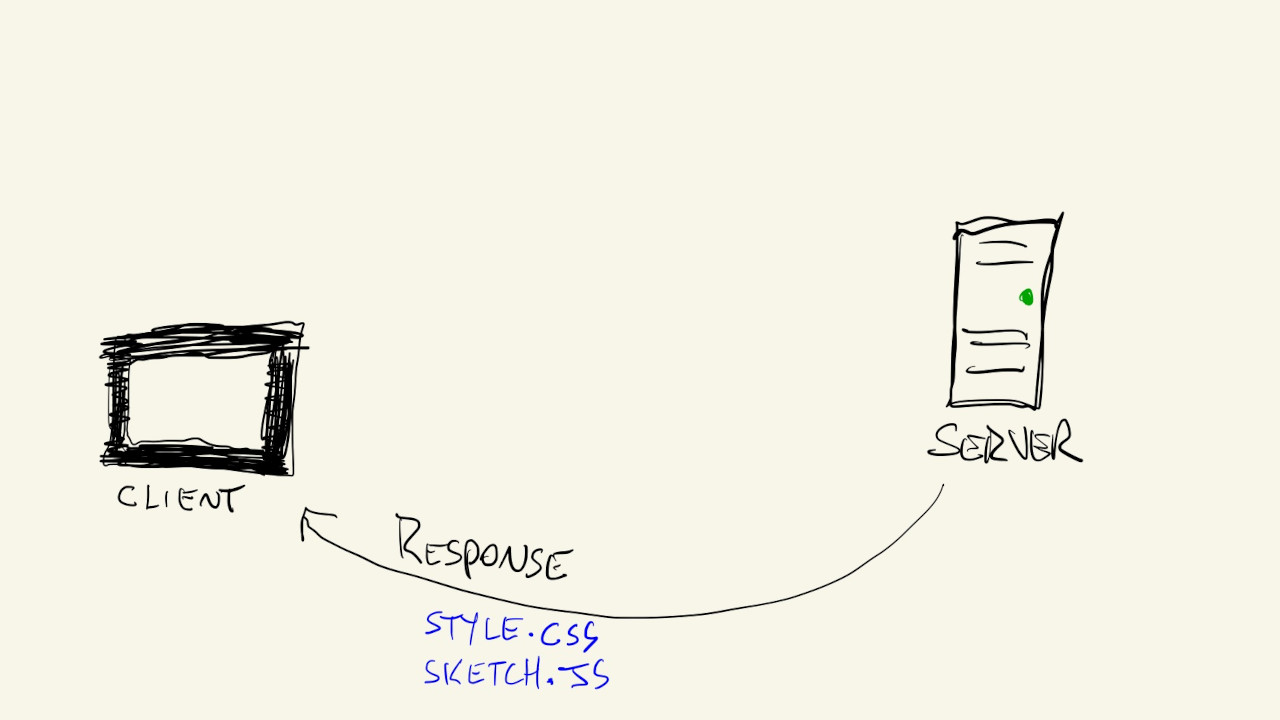 SERVER
CLIENT
RESPONSE
STYLE.CSS
SKETCH.JS